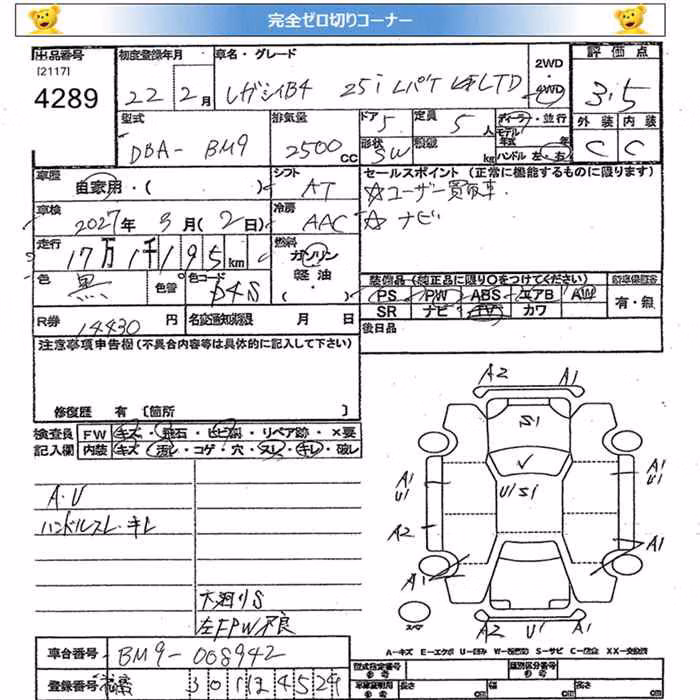 完全ゼロ切りコーナー
出品番号
[2117]
4289
初度登録年月
22年 2月
車名・グレード
レガシィB4 25i Lパケ LTD
2WD
4WD
評価点
3.5
外装 内装
C C
型式
DBA- BM9
排気量
2500cc
ドア
5
形状
SW
定員
5人
類別
kg
ディーラー・並行
モデル
年式 年
ハンドル 左・右
車歴
自家用・( )
シフト
AT
セールスポイント (正常に機能するものに限ります)
☆ユーザー買取車.
☆ナビ
車検
2027年 3月(2日)
冷房
AAC
走行
17万1千195km
燃料
ガソリン
軽油
( )
色
黒
色替
色コード
D4S
装備品(純正品に限り○をつけてください)
PS PW ABS エアB AW
SR ナビ TV カワ
新車保証書
有・無
R券
14430円
名変通知期限 月 日
後日品
注意事項申告欄(不具合内容等は具体的に記入して下さい)
修復歴 有 [箇所 ]
検査員
記入欄
FW キズ・飛石・ヒビ割・リペア跡・×要
内装 キズ・汚レ・コゲ・穴・スレ・キレ・破レ
A.U
ハンドルスレ.キレ
下廻りS
左FPW不良
A2 A1
S1
U1S1
A1
U1
A1
U1
A2
A1
A1
スペア
A2 U1 A1
A-キズ E-エクボ U-凹み W-波凹み S-サビ C-腐食 XX-交換済
車台番号
BM9-008942
登録番号
301 3 4529
型式指定番号
参考
類別区分番号
参考
車検証明用
参考
長さ cm
幅 cm
高さ cm